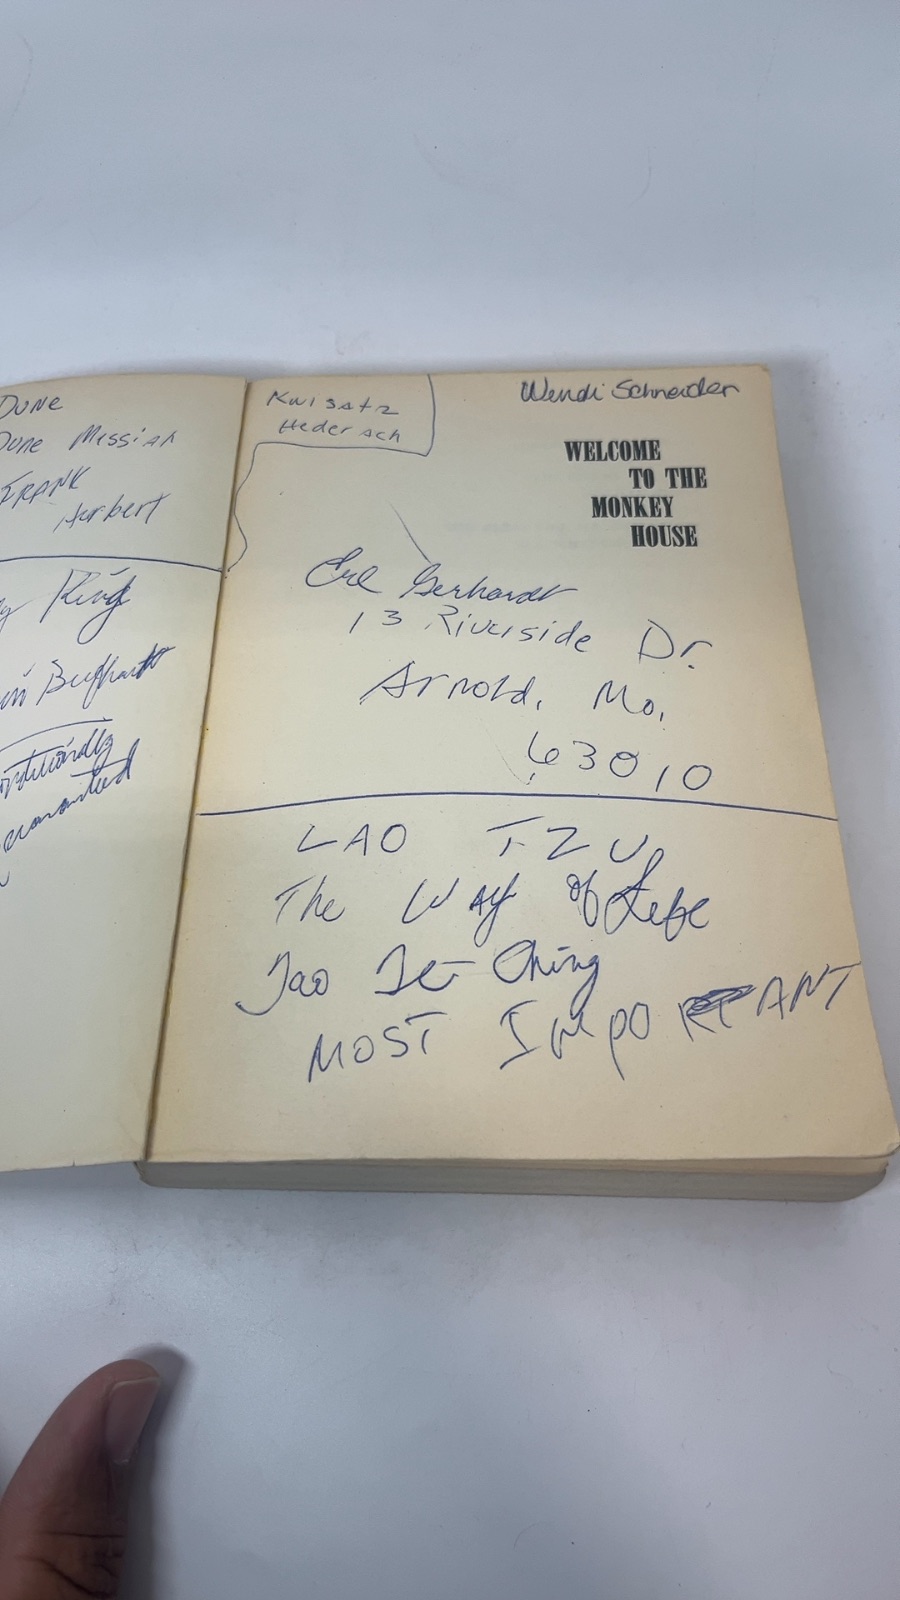 DUNE
Dune Messiah
FRANK
Herbert
King
Kwisatz
Hederach
Wendi Schneider
WELCOME
TO THE
MONKEY
HOUSE
Gerhardt
13 Riverside Dr.
Arnold, Mo.
63010
LAO TZU
The Way of Life
Tao Te Ching
MOST IMPORTANT